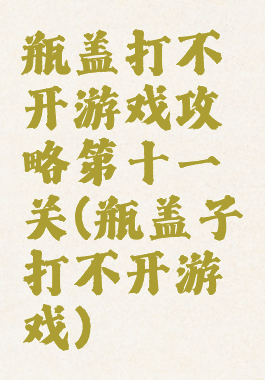 瓶盖打不
开游戏攻
略第十一
关(瓶盖子
打不开游
戏)